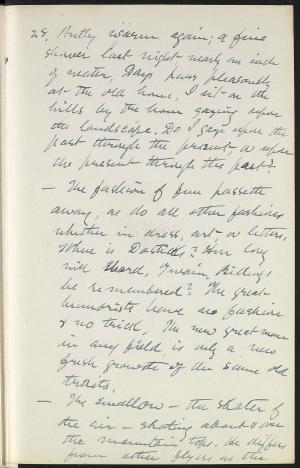 29. Pretty warm again; a fine
shower last night nearly an inch
of water. Days pass pleasantly
at the old home. I sit on the
hills by the hour gazing upon
the landscape. Do I gaze upon the
past through the present, or upon
the present through the past?
— The fashion of fun passeth
away, as do all other fashions
whether in dress, art or letters.
Where is Doesticks? How long
will Ward, Twain, Billings
be remembered? The great
humorists have no fashion
& no trick. The new great man
in any field, is only a new
fresh growth of the same old
traits.
— The swallow — the skater of
the air — skating about over
the mountain tops. He differs
from other flyers as the